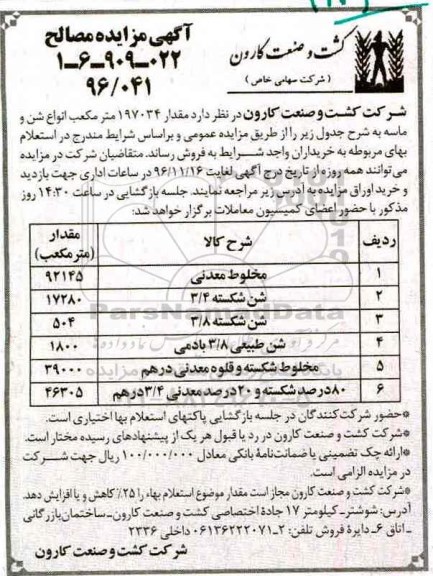 کشت و صنعت کارون
( شرکت سهامی خاص )
آگهی مزایده مصالح
۱-۶-۹۰۹-۰۲۲
۹۶/۰۴۱
شرکت کشت و صنعت کارون در نظر دارد مقدار ۱۹۷۰۳۴ متر مکعب انواع شن و
ماسه به شرح جدول زیر را از طریق مزایده عمومی و براساس شرایط مندرج در استعلام
بهای مربوطه به خریداران واجد شرایط به فروش رساند. متقاضیان شرکت در مزایده
می‌توانند همه روزه از تاریخ درج آگهی لغایت ۹۶/۱۱/۱۶ در ساعات اداری جهت بازدید
و خرید اوراق مزایده به آدرس زیر مراجعه نمایند. جلسه بازگشایی در ساعت ۱۴:۳۰ روز
مذکور با حضور اعضای کمیسیون معاملات برگزار خواهد شد:
ردیف شرح کالا مقدار (متر مکعب)
۱ مخلوط معدنی ۹۲۱۴۵
۲ شن شکسته ۳/۴ ۱۷۲۸۰
۳ شن شکسته ۳/۸ ۵۰۴
۴ شن طبیعی ۳/۸ بادمی ۱۸۰۰
۵ مخلوط شکسته و قلوه معدنی درهم ۳۹۰۰۰
۶ ۸۰ درصد شکسته و ۲۰ درصد معدنی ۳/۴ درهم ۴۶۳۰۵
*حضور شرکت کنندگان در جلسه بازگشایی پاکتهای استعلام بها اختیاری است.
*شرکت کشت و صنعت کارون در رد یا قبول هر یک از پیشنهادهای رسیده مختار است.
*ارائه چک تضمینی یا ضمانت‌نامهٔ بانکی معادل ۱۰۰/۰۰۰/۰۰۰ ریال جهت شرکت
در مزایده الزامی است.
*شرکت کشت و صنعت کارون مجاز است مقدار موضوع استعلام بهاء را ۲۵٪ کاهش و یا افزایش دهد.
آدرس: شوشتر- کیلومتر ۱۷ جادهٔ اختصاصی کشت و صنعت کارون- ساختمان بازرگانی
- اتاق ۶- دایرهٔ فروش تلفن: ۲-۰۶۱۳۶۲۲۲۰۷۱ داخلی ۲۳۳۶
شرکت کشت و صنعت کارون
ParsNamadData